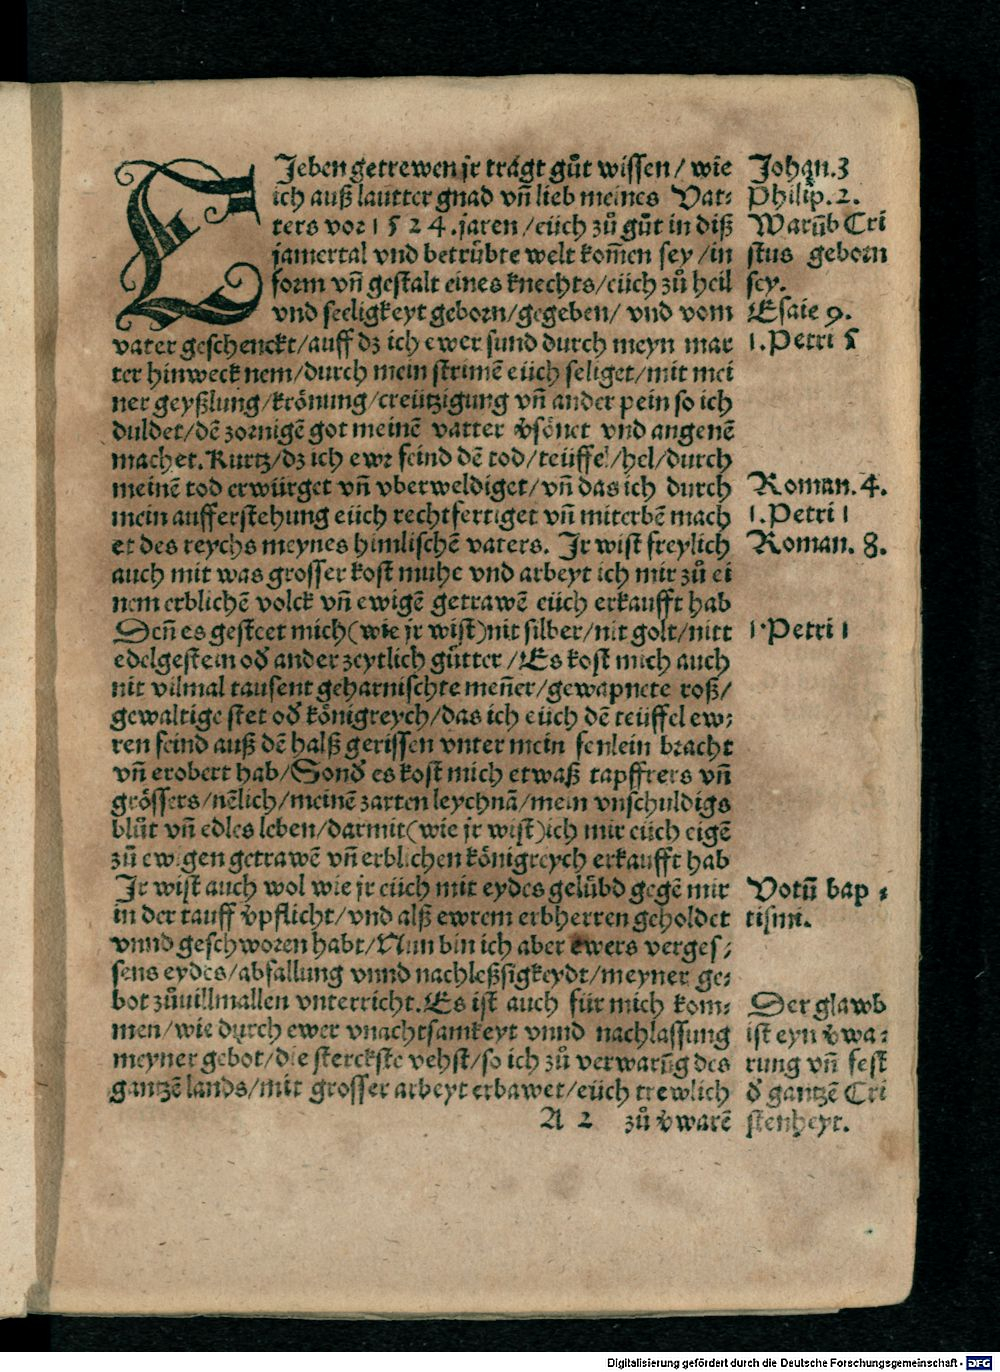 LJeben getrewen jr trågt gůt wissen / wie
ich auß lautter gnad vñ lieb meines Vat⸗
ters vor 1524. jaren / eüch zů gůt in diß
jamertal vnd betrübte welt kom̃en sey / in
form vñ gestalt eines knechts / eüch zů heil
vnd seeligkeyt geborn / gegeben / vnd vom
vater geschenckt / auff dz ich ewer sund durch meyn mar
ter hinweck nem / durch mein strimẽ eüch seliget / mit mei
ner geyßlung / krönung / creützigung vñ ander pein so ich
duldet / dẽ zornigẽ got meinẽ vatter v̓sönet vnd angenẽ
machet. Kurtz / dz ich ewr feind dẽ tod / teüffel / hel / durch
meinẽ tod erwürget vñ vberweldiget / vñ das ich durch
mein aufferstehung eüch rechtfertiget vñ miterbẽ mach
et des reychs meynes himlischẽ vaters. Jr wist freylich
auch mit was grosser kost muhe vnd arbeyt ich mir zů ei
nem erblichẽ volck vñ ewigẽ getrawẽ eüch erkaufft hab
Deñ es gesteet mich (wie jr wist) nit silber / nit golt / nitt
edelgestein od̓ ander zeytlich gůtter / Es kost mich auch
nit vilmal tausent geharnischte meñer / gewapnete roß /
gewaltige stet od̓ königreych / das ich eüch dẽ teüffel ew⸗
ren feind auß dẽ halß gerissen vnter mein fenlein bracht
vñ erobert hab / Sond̓ es kost mich etwaß tapffrers vñ
grössers / nẽlich / meinẽ zarten leychnã / mein vnschuldigs
blůt vñ edles leben / darmit (wie jr wist) ich mir eüch eigẽ
zů ewigen getrawẽ vñ erblichen königreych erkaufft hab
Jr wist auch wol wie jr eüch mit eydes gelübd gegẽ mir
in der tauff v̓pflicht / vnd alß ewrem erbherren geholdet
vnnd geschworen habt / Nun bin ich aber ewers verges⸗
sens eydes / abfallung vnnd nachleßsigkeydt / meyner ge⸗
bot zůuillmallen vnterricht. Es ist auch für mich kom⸗
men / wie durch ewer vnachtsamkeyt vnnd nachlassung
meyner gebot / die sterckste vehst / so ich zů verwarũg des
gantzẽ lands / mit grosser arbeyt erbawet / eüch trewlich
A 2 zů v̓warẽ
Johan. 3
Philip. 2.
Warũb Cri
stus geborn
sey.
Esaie 9.
1. Petri 5
Roman. 4.
1. Petri 1
Roman. 8.
1. Petri 1
Votũ bap⸗
tismi.
Der glawb
ist eyn v̓wa⸗
rung vñ fest
d̓ gantzẽ Cri
stenheyt.
Digitalisierung gefördert durch die Deutsche Forschungsgemeinschaft - DFG